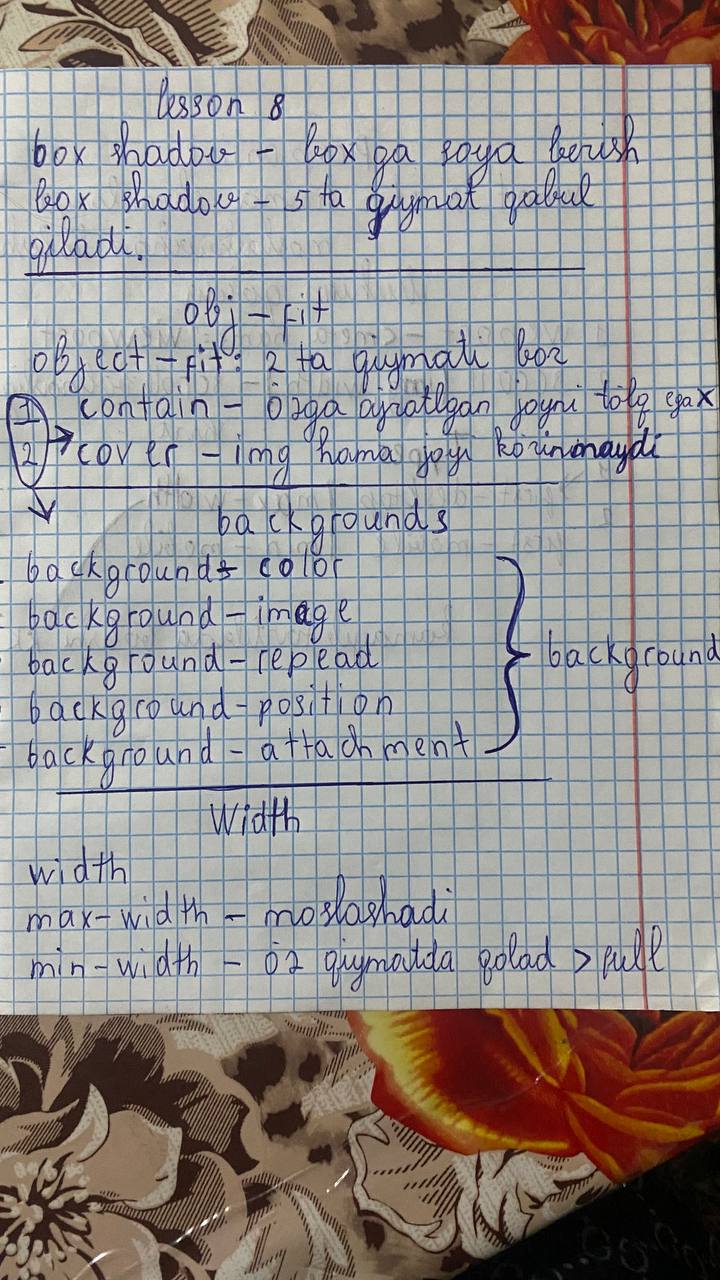 lesson 8
box shadow - box ga soya berish
box shadow - 5 ta qiymat qabul
qiladi.
obj-fit
object-fit: 2 ta qiymati bor
1 contain - özga ajratlgan joyni tölq egax
2 cover - img hama joyi körinmaydi
backgrounds
background- color
background-image
background-repead
background-position
background-attachment
background
Width
width
max-width - moslashadi
min-width - öz qiymatda qolad > full